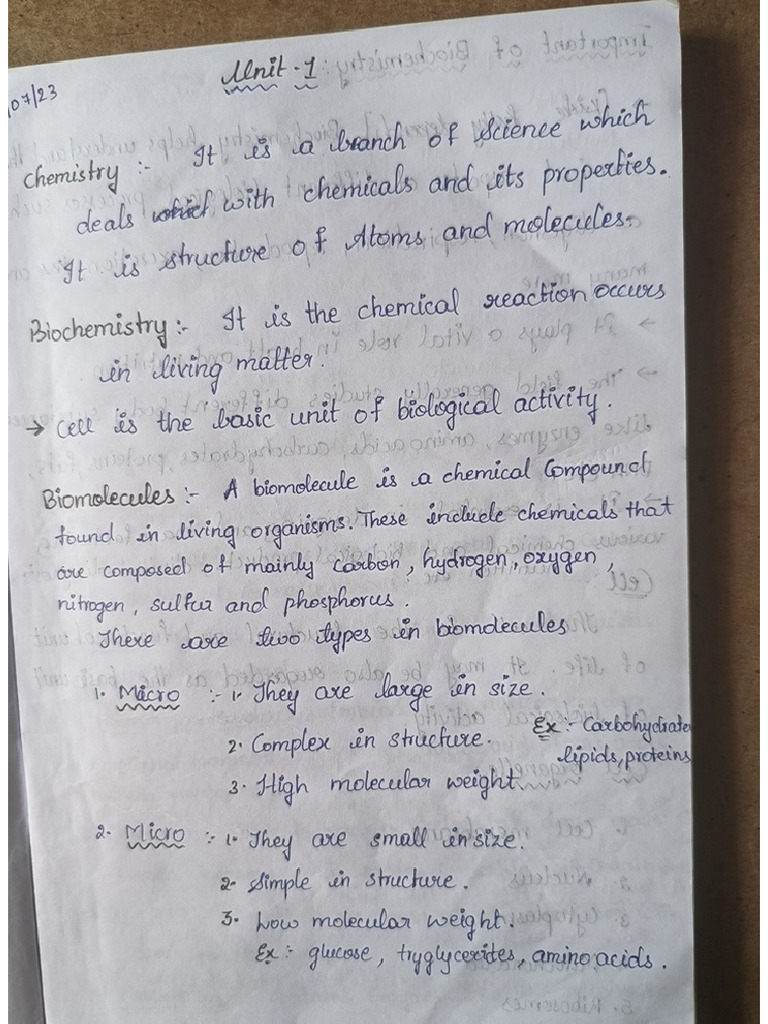 07/23
Unit - 1
Chemistry :- It is a branch of science which
deals with chemicals and its properties.
It is structure of Atoms and molecules.
Biochemistry :- It is the chemical reaction occurs
in living matter.
→ Cell is the basic unit of biological activity.
Biomolecules :- A biomolecule is a chemical Compound
found in living organisms. These include chemicals that
are composed of mainly carbon, hydrogen, oxygen,
nitrogen, sulfur and phosphorus.
There are two types in biomolecules
1. Micro :- 1. They are large in size.
2. Complex in structure.
Ex :- Carbohydrate
lipids, proteins
3. High molecular weight.
2. Micro :- 1. They are small in size.
2. Simple in structure.
3. Low molecular weight.
Ex :- glucose, tryglycerites, amino acids.